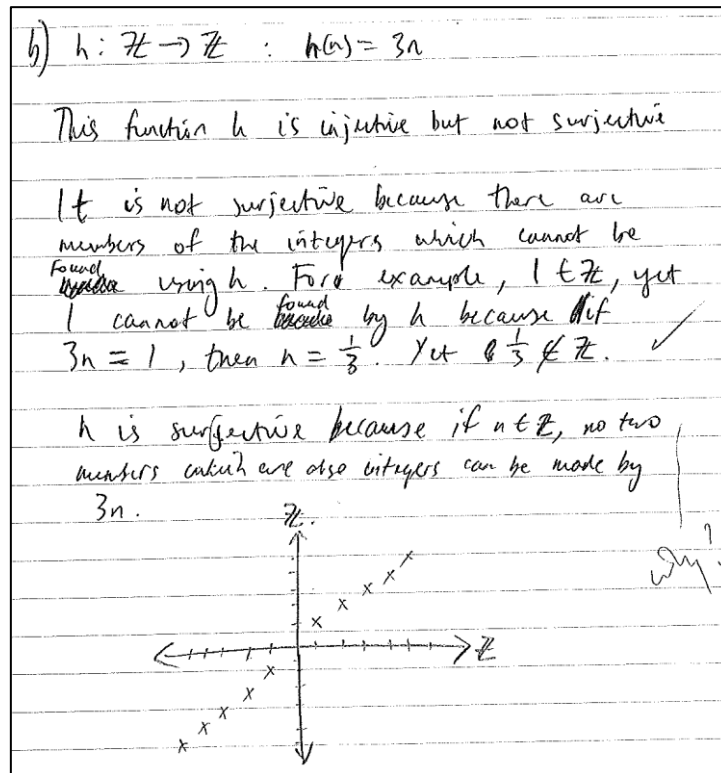 b) h: ℤ → ℤ : h(n) = 3n
This function h is injective but not surjective
It is not surjective because there are
members of the integers which cannot be
found using h. For example, 1 ∈ ℤ, yet
1 cannot be found by h because if
3n = 1, then n = 1/3. Yet 1/3 ∉ ℤ. ✓
h is surjective because if n ∈ ℤ, no two
numbers which are also integers can be made by
3n.
why?
ℤ.
ℤ